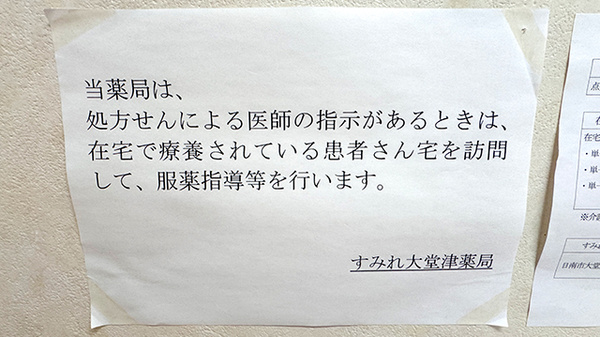 当薬局は、
処方せんによる医師の指示があるときは、
在宅で療養されている患者さん宅を訪問
して、服薬指導等を行います。
すみれ大堂津薬局
点
在宅
・単一
・単一
・単一
※介護
すみれ
日南市大堂